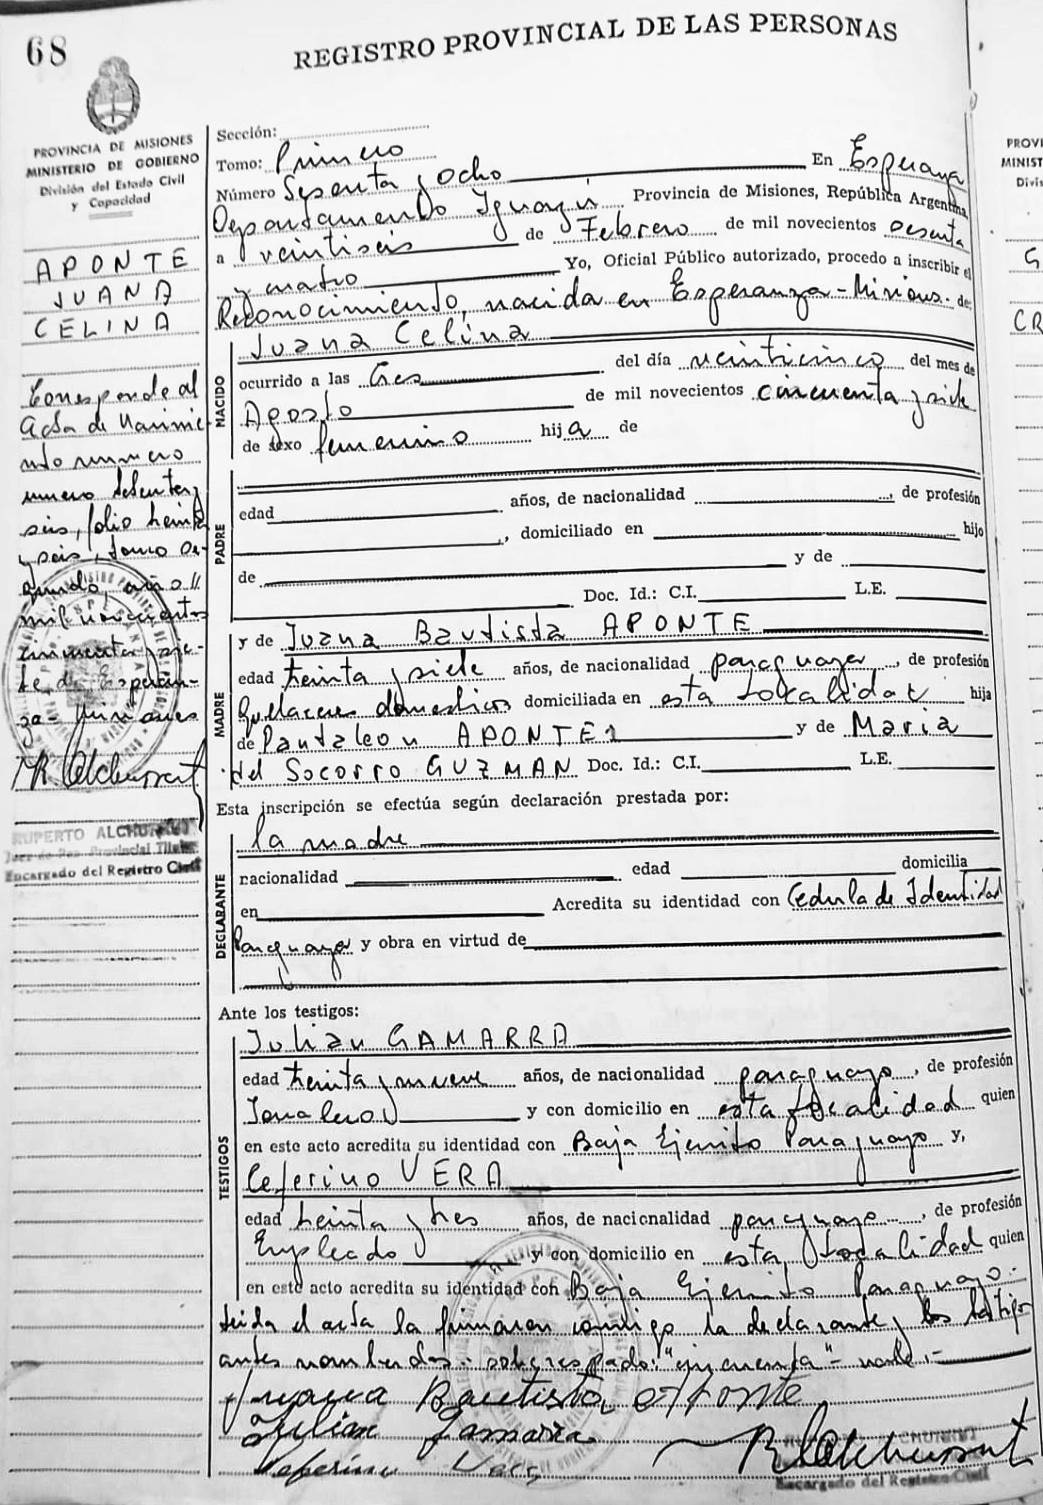 68
REGISTRO PROVINCIAL DE LAS PERSONAS
PROVINCIA DE MISIONES
MINISTERIO DE GOBIERNO
División del Estado Civil
y Capacidad
APONTE
JUANA
CELINA
Corresponde al
acta de Nacimie
nto numero
numero setenta y
seis, folio treinta
y seis, tomo se-
gundo, año //
mil novecientos
cincuenta y sie-
te, de Esperan-
za - Misiones
RUPERTO ALCHURRUT
Juez de Paz Provincial Titular
Encargado del Registro Civil
Sección:
Tomo: Primero
En Esperanza
Número Sesenta y Ocho
Departamento Iguazú Provincia de Misiones, República Argentina,
a veintiseis de Febrero de mil novecientos sesenta
y cuatro Yo, Oficial Público autorizado, procedo a inscribir el
Reconocimiento, nacida en Esperanza - Misiones - de:
Juana Celina
NACIDO
ocurrido a las tres del día veinticinco del mes de
Agosto de mil novecientos cincuenta y siete
de sexo femenino hija de
PADRE
edad años, de nacionalidad , de profesión
, domiciliado en hijo
de y de
Doc. Id.: C.I. L.E.
MADRE
y de Juana Bautista APONTE
edad treinta y siete años, de nacionalidad paraguaya , de profesión
Quehaceres domesticos domiciliada en esta localidad hija
de Pantaleon APONTE y de Maria
del Socorro GUZMAN Doc. Id.: C.I. L.E.
Esta inscripción se efectúa según declaración prestada por:
DECLARANTE
la madre
nacionalidad edad domicilia
en Acredita su identidad con Cedula de Identidad
Paraguaya y obra en virtud de
Ante los testigos:
TESTIGOS
Julian GAMARRA
edad treinta y nueve años, de nacionalidad paraguayo , de profesión
Jornalero y con domicilio en esta localidad quien
en este acto acredita su identidad con Baja Ejercito Paraguayo y,
Ceferino VERA
edad treinta y tres años, de nacionalidad paraguayo , de profesión
Empleado y con domicilio en esta localidad quien
en este acto acredita su identidad con Baja Ejercito Paraguayo.-
Leida el acta la firmaron conmigo la declarante y los testigos
antes nombrados.- sobrerraspado: "cincuenta" - vale.-
Juana Bautista Aponte
Julian Gamarra
Ceferino Vera
Encargado del Registro Civil
PROVI
MINIST
Divis
G
CR